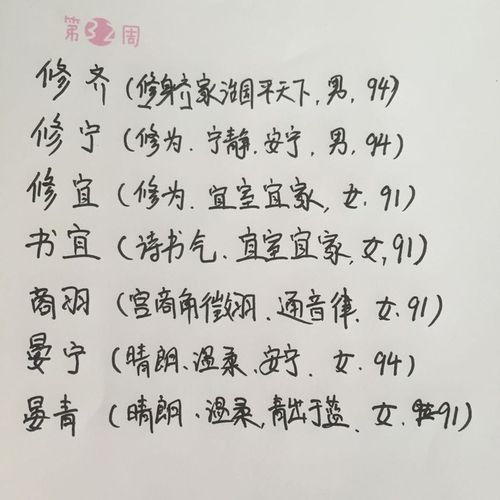 第32周
修齐（修身齐家治国平天下，男，94）
修宁（修为、宁静、安宁，男，94）
修宜（修为、宜室宜家，女，91）
书宜（诗书气、宜室宜家，女，91）
商羽（宫商角徵羽、通音律、女、91）
晏宁（晴朗、温柔、安宁、女、94）
晏青（晴朗、温柔，青出于蓝、女、91）